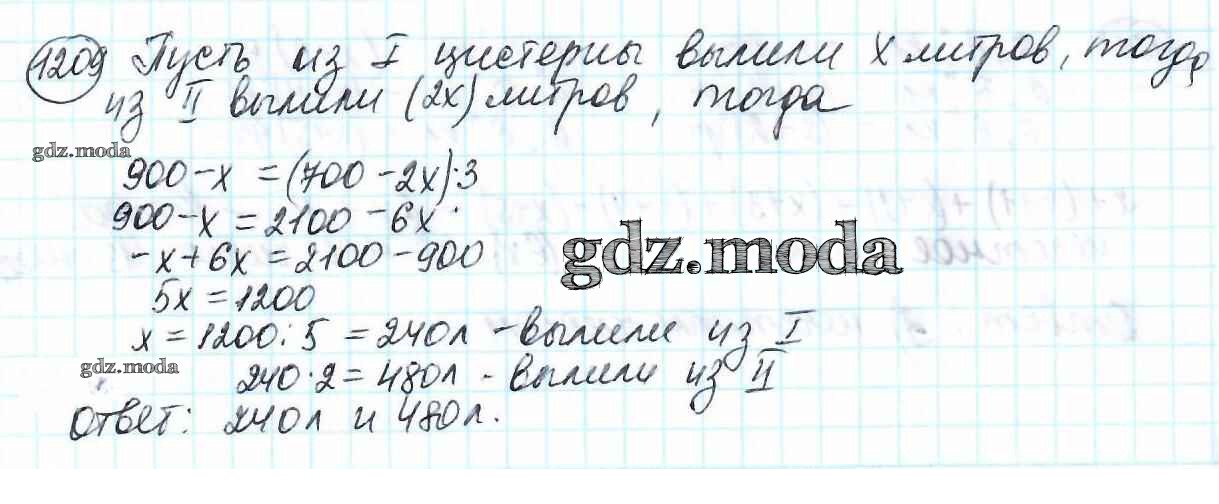 1209 Пусть из I цистерны вылили x литров, тогда
из II вылили (2x) литров, тогда
gdz.moda
900-x = (700-2x)·3
900-x = 2100-6x
-x+6x=2100-900
gdz.moda
5x=1200
x=1200:5=240л - вылили из I
gdz.moda
240·2=480л - вылили из II
Ответ: 240л и 480л.